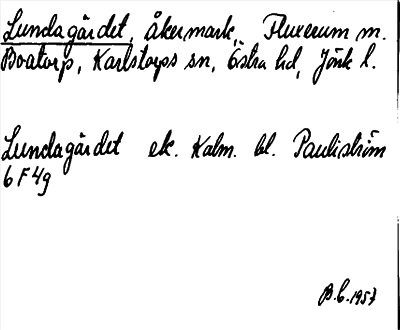 Lundagärdet, åkermark, Fluxerum m.
Boatorp, Karlstorps sn, Östra hd, Jönk l.
Lundagärdet ek. Kalm. bl. Pauliström
6 F 4g
B.C. 1953